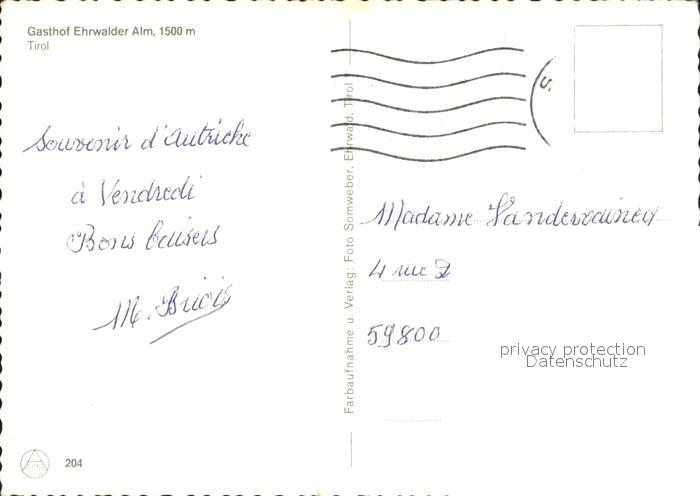 Gasthof Ehrwalder Alm, 1500 m
Tirol
Souvenir d'Autriche
à Vendredi
Bons baisers
M.
Farbaufnahme u. Verlag: Foto Somweber, Ehrwald, Tirol
S.
Madame
4 rue
59800
privacy protection
Datenschutz
204